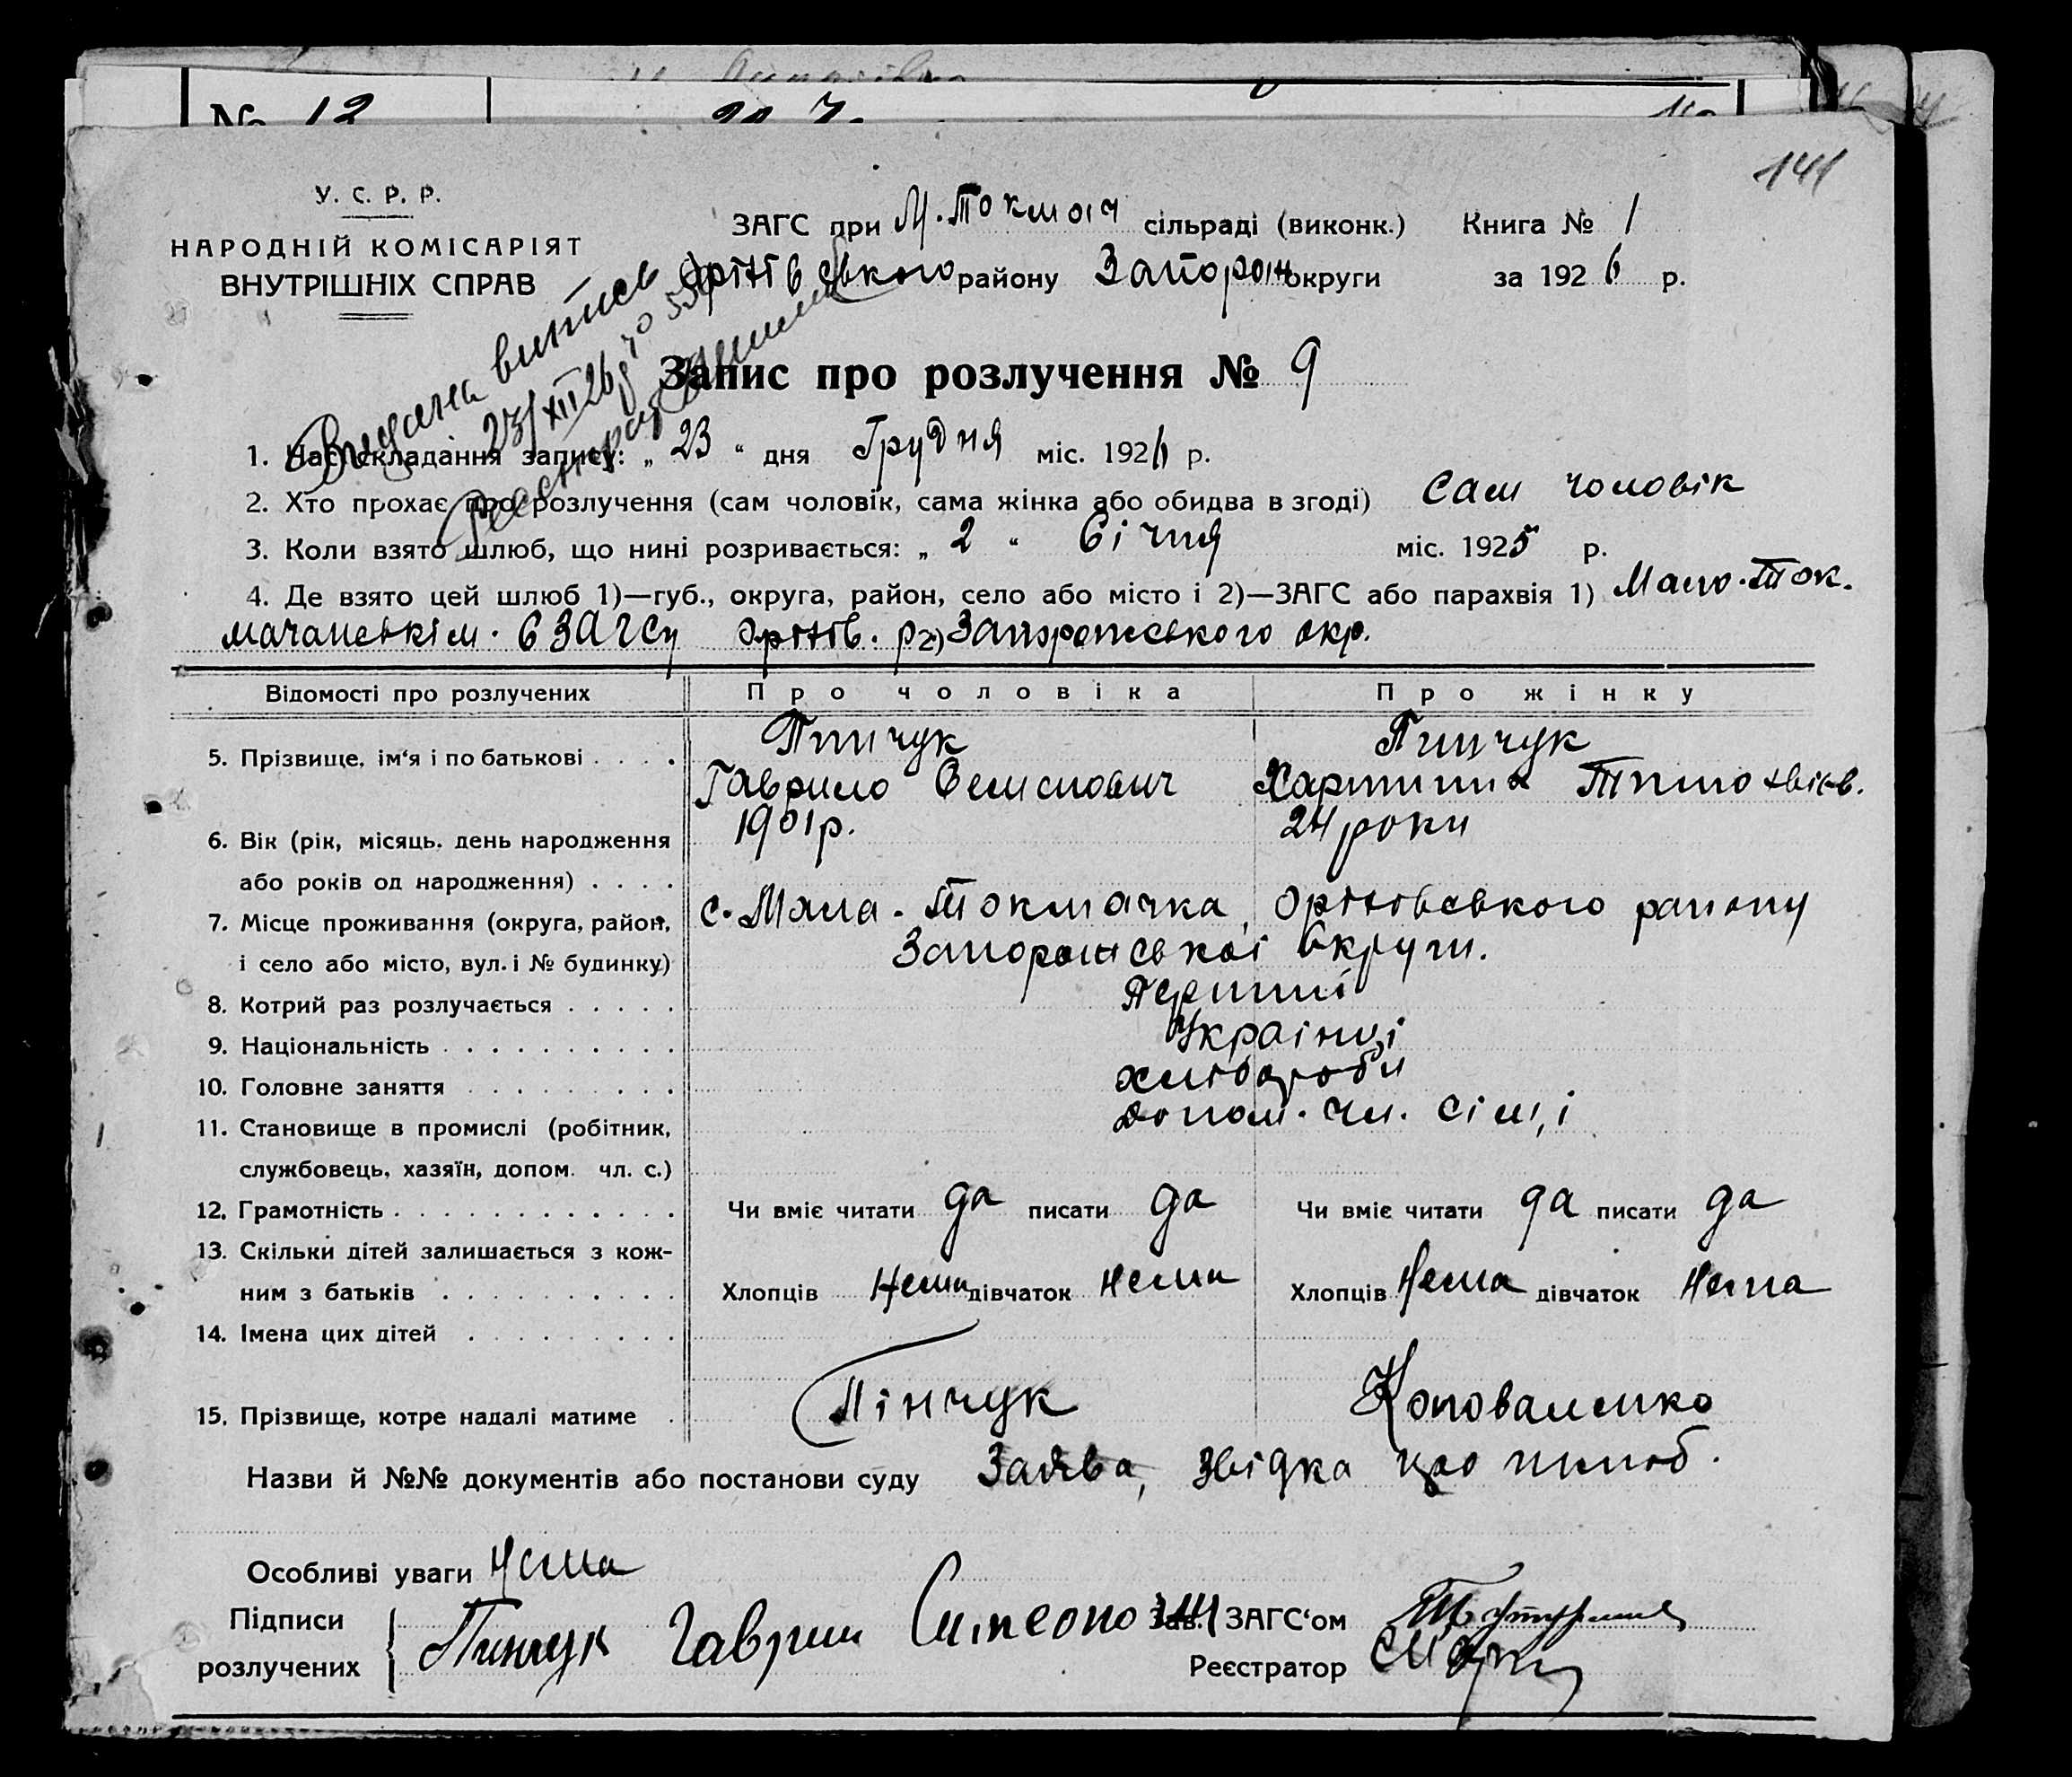 № 12
141
У. С. Р. Р.
НАРОДНІЙ КОМІСАРІЯТ
ВНУТРІШНІХ СПРАВ
ЗАГС при М. Токмач сільраді (виконк.) Книга № 1
Оріхівського району Запоріж округи за 1926 р.
Видана витись
23/XII 26 р
Запис про розлучення № 9
1. Час складання запису: „ 23 “ дня Грудня міс. 1926 р.
2. Хто прохає про розлучення (сам чоловік, сама жінка або обидва в згоді) Сам чоловік
3. Коли взято шлюб, що нині розривається: „ 2 “ Січня міс. 1925 р.
4. Де взято цей шлюб 1)—губ., округа, район, село або місто і 2)—ЗАГС або парахвія 1) Мало-Ток.
мачанськім. в ЗАГСу Оріхів. р 2) Запорожського окр.
Відомості про розлучених Про чоловіка Про жінку
5. Прізвище, ім‘я і по батькові Пинчук Пинчук
Гаврило Семенович Хартина Тимофіїв.
6. Вік (рік, місяць, день народження 1901 р. 24 роки
або років од народження)
7. Місце проживання (округа, район, с. Мала-Токмачка, Оріховського району
і село або місто, вул. і № будинку) Запорожської округи.
8. Котрий раз розлучається Перший
9. Національність Українці
10. Головне заняття хлібороби
11. Становище в промислі (робітник, допом. чл. сімʼї
службовець, хазяїн, допом. чл. с.)
12. Грамотність Чи вміє читати да писати да Чи вміє читати да писати да
13. Скільки дітей залишається з кож-
ним з батьків Хлопців Нема дівчаток Нема Хлопців Нема дівчаток Нема
14. Імена цих дітей
15. Прізвище, котре надалі матиме Пінчук Коноваленко
Назви й №№ документів або постанови суду Заява, звідка про шлюб.
Особливі уваги Нема
Підписи
розлучених Пинчук Гаврил Зав. ЗАГС‘ом
Реєстратор